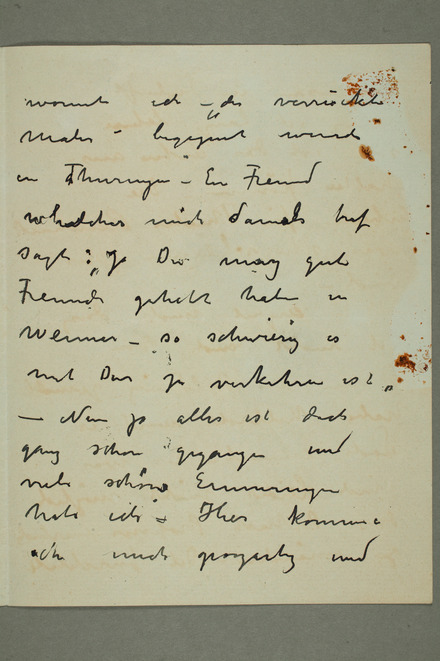 womit ich – „der verrückte
Maler“ begegnet wurde
in Thüringen – Ein Freund
whelcher mich damals traf
sagte: „Ja Du mag gute
Freunde gehabt haben in
Weimar – so schwierig es
mit Dir zu verkehren ist“
– Nun ja alles ist doch
ganz schön gegangen und
viele schöne Erinnerungen
habe ich – Hier komme
ich mich und